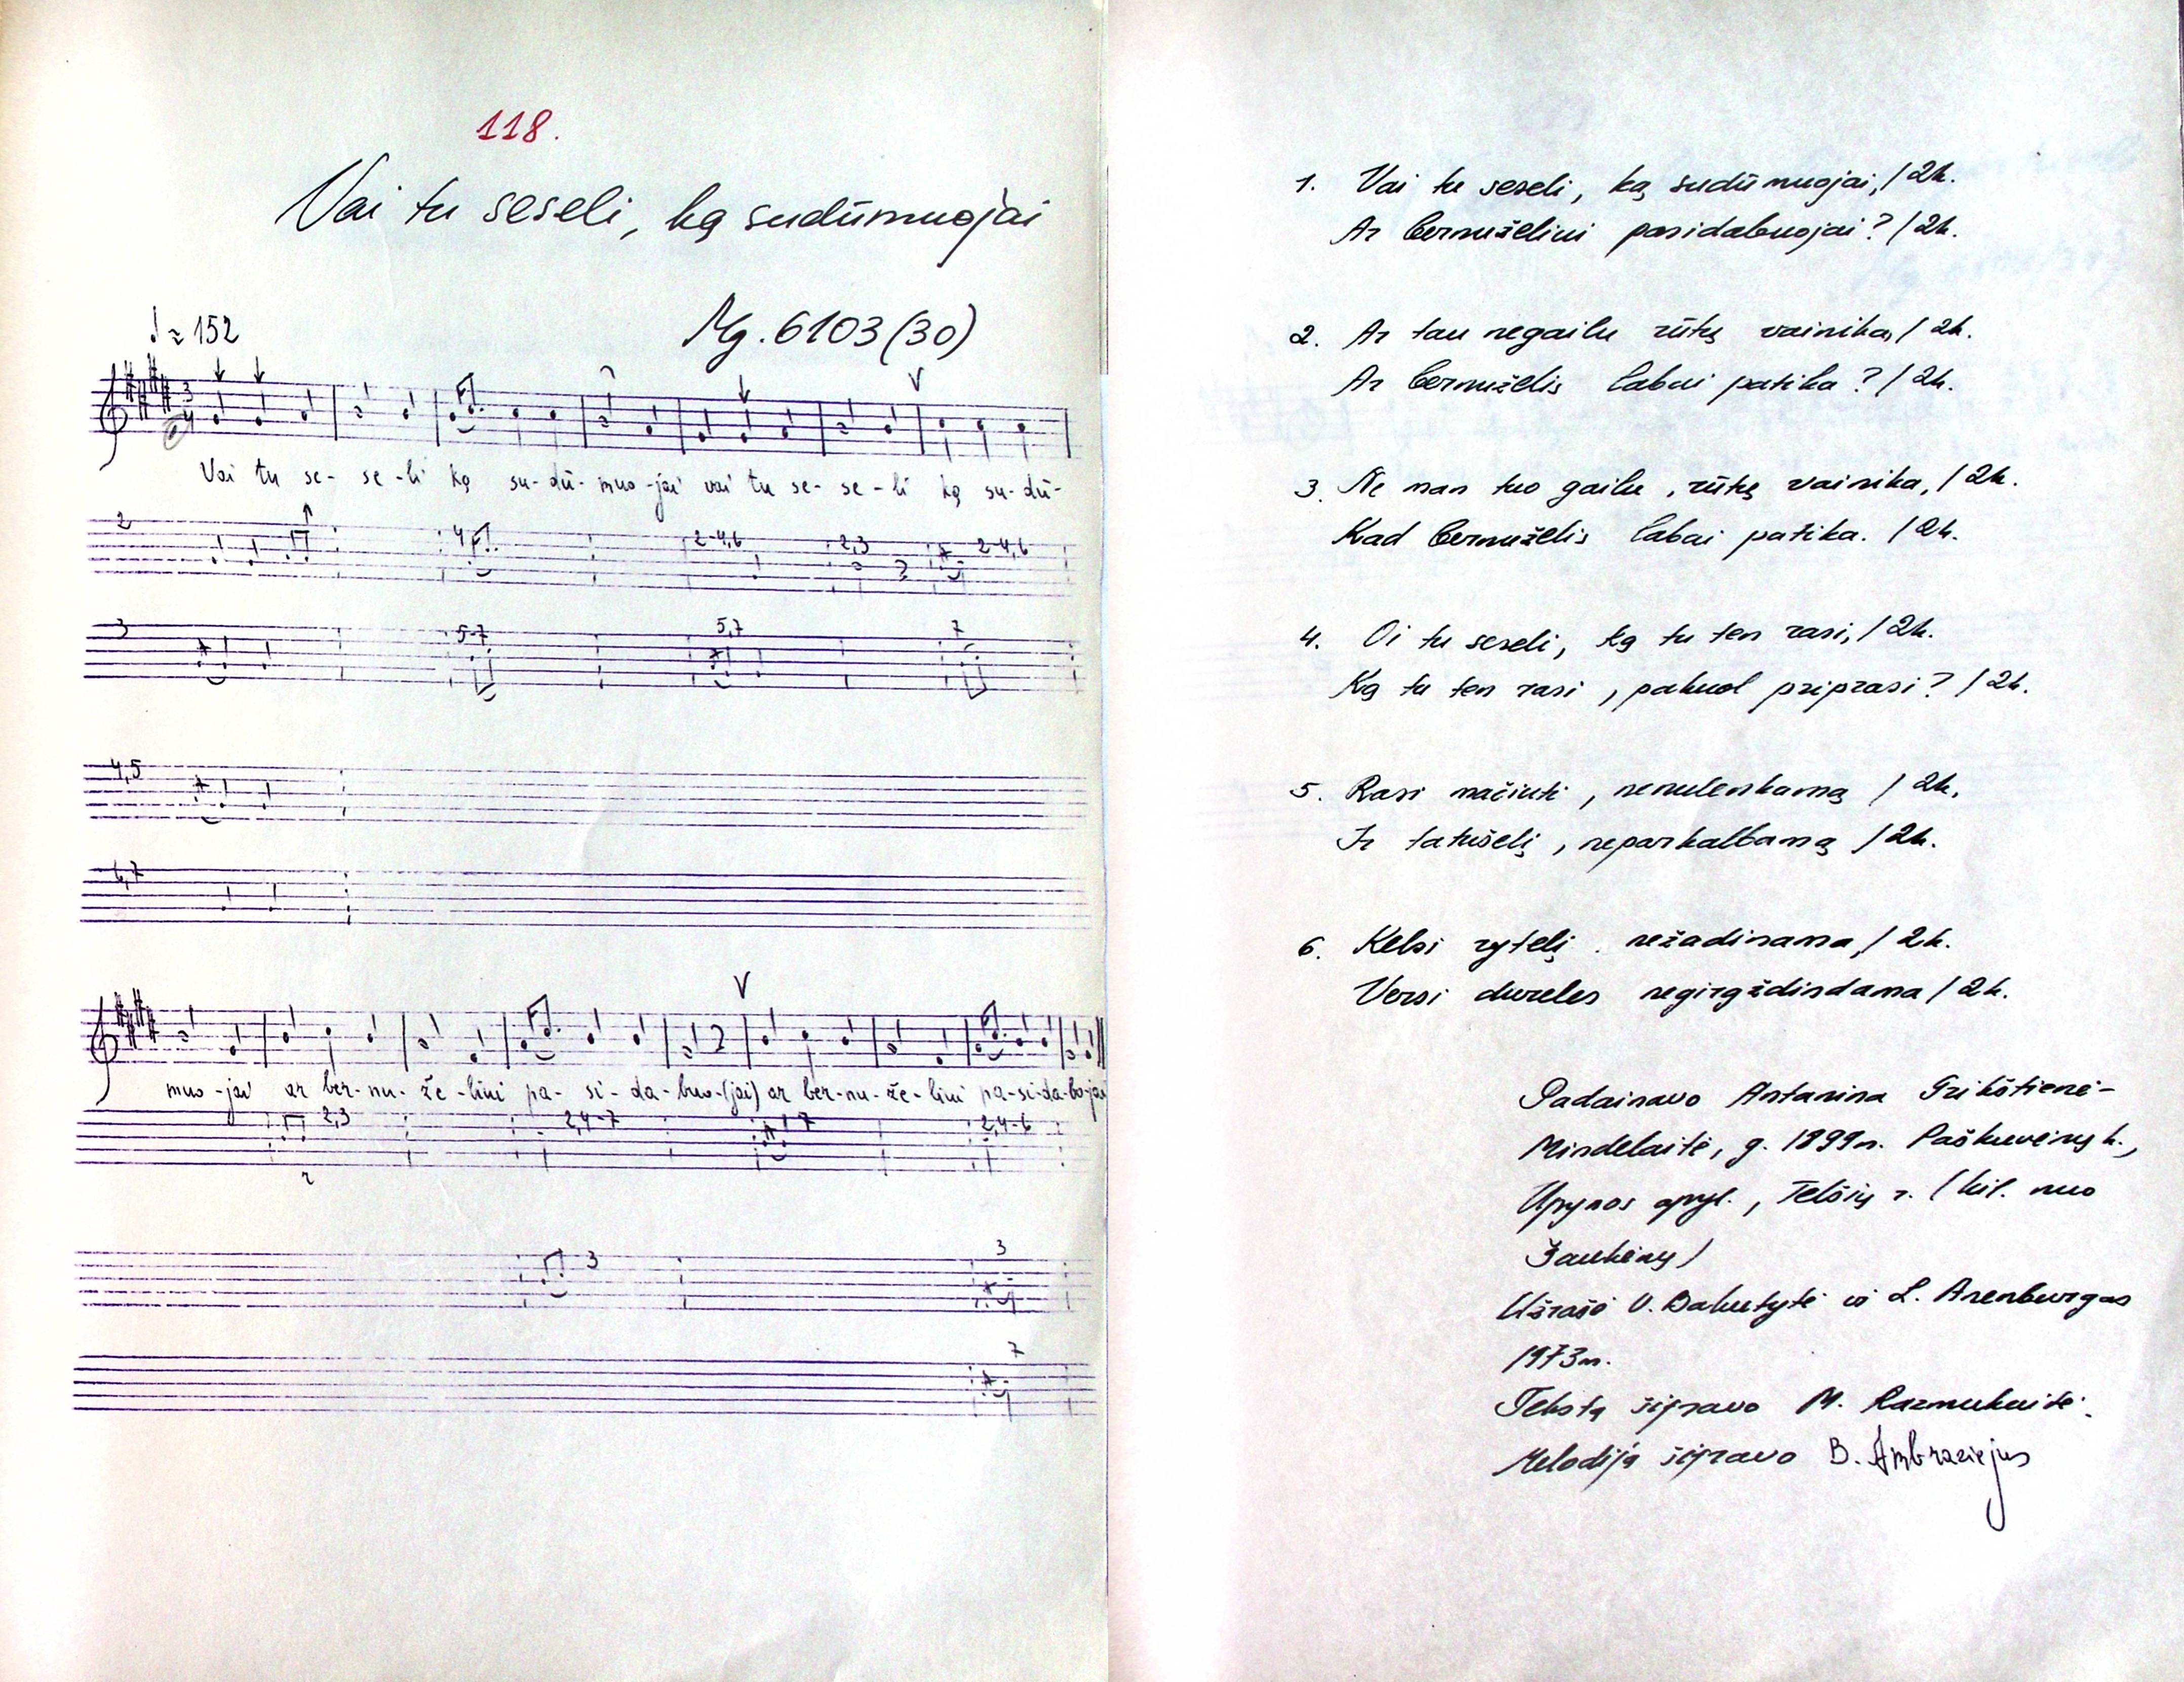 118.
Vai tu seseli, ką sudūmuojai
Mg. 6103 (30)
♩≈152
Vai tu se- se -li ką su- dū- muo -jai vai tu se- se - li ką su- dū-
2 4 2-4,6 2,3 2-4,6
3 5-7 5,7 7
4,5
6,7
muo -jai ar ber- nu- že -lini pa- si- da- buo-(jai) ar ber-nu- že- lini pa-si-da-bo-jai
2,3 2,4-7 7 2,4-6
3 3
7
1. Vai tu seseli, ką sudūmuojai, / 2k.
Ar bernuželini pasidabuojai? / 2k.
2. Ar tau negailu rūtų vainika, / 2k.
Ar bernuželis labai patika? / 2k.
3. Ne man tuo gailu, rūtų vainika, / 2k.
Kad bernuželis labai patika. / 2k.
4. Oi tu seseli, ką tu ten rasi, / 2k.
Ką tu ten rasi, pakuol priprasi? / 2k.
5. Rasi močiuti, nenulenkamą / 2k.
Ir tatušelį, neparkalbamą / 2k.
6. Kelsi rytelį nežadinama, / 2k.
Versi dureles negirgždindama / 2k.
Padainavo Antanina Grikštienė-
Mindelaitė, g. 1899 m. Paškuvėnų k.,
Upynos apyl., Telšių r. (kil. nuo
Šaukėnų)
Užrašė V. Dakutytė ir L. Arenburgas
1973 m.
Tekstą šifravo M. Razmukaitė.
Melodiją šifravo B. Ambraziejus